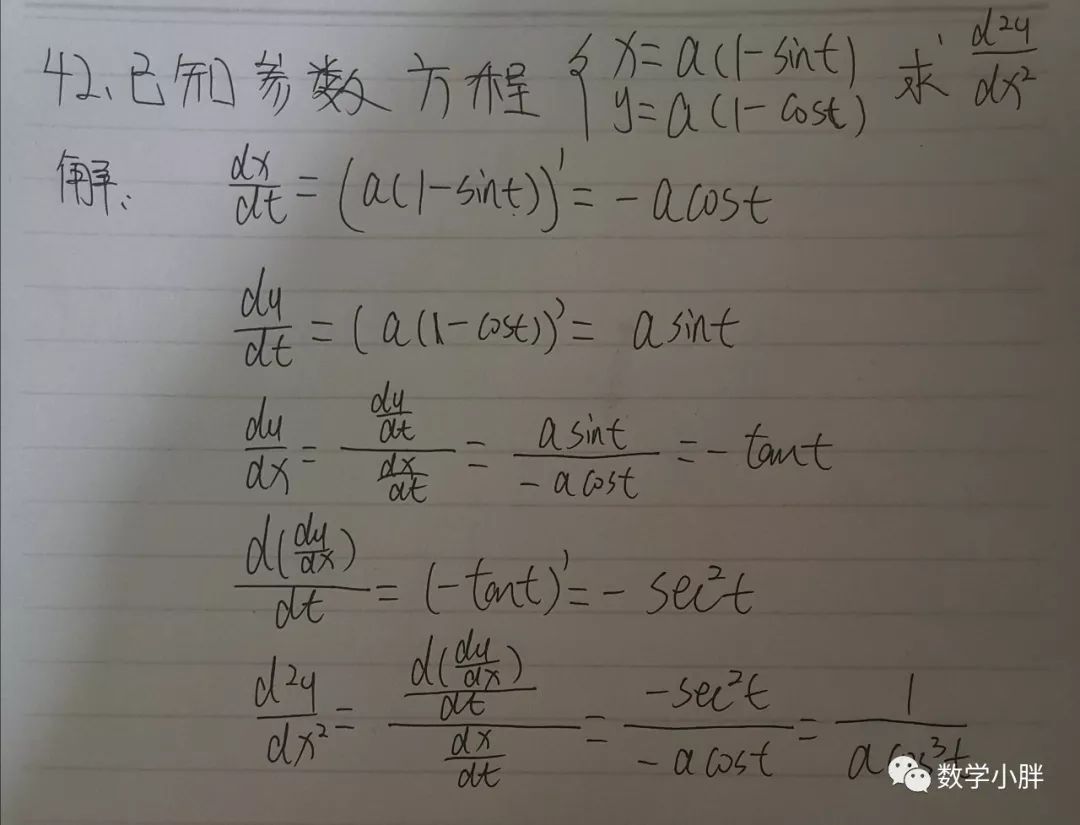 42、已知参数方程 { x=a(1-sint) y=a(1-cost) 求 d²y/dx²
解: dx/dt = (a(1-sint))' = -acost
dy/dt = (a(1-cost))' = asint
dy/dx = (dy/dt)/(dx/dt) = asint/(-acost) = -tant
d(dy/dx)/dt = (-tant)' = -sec²t
d²y/dx² = (d(dy/dx)/dt)/(dx/dt) = -sec²t/(-acost) = 1/(acos³t)
数学小胖